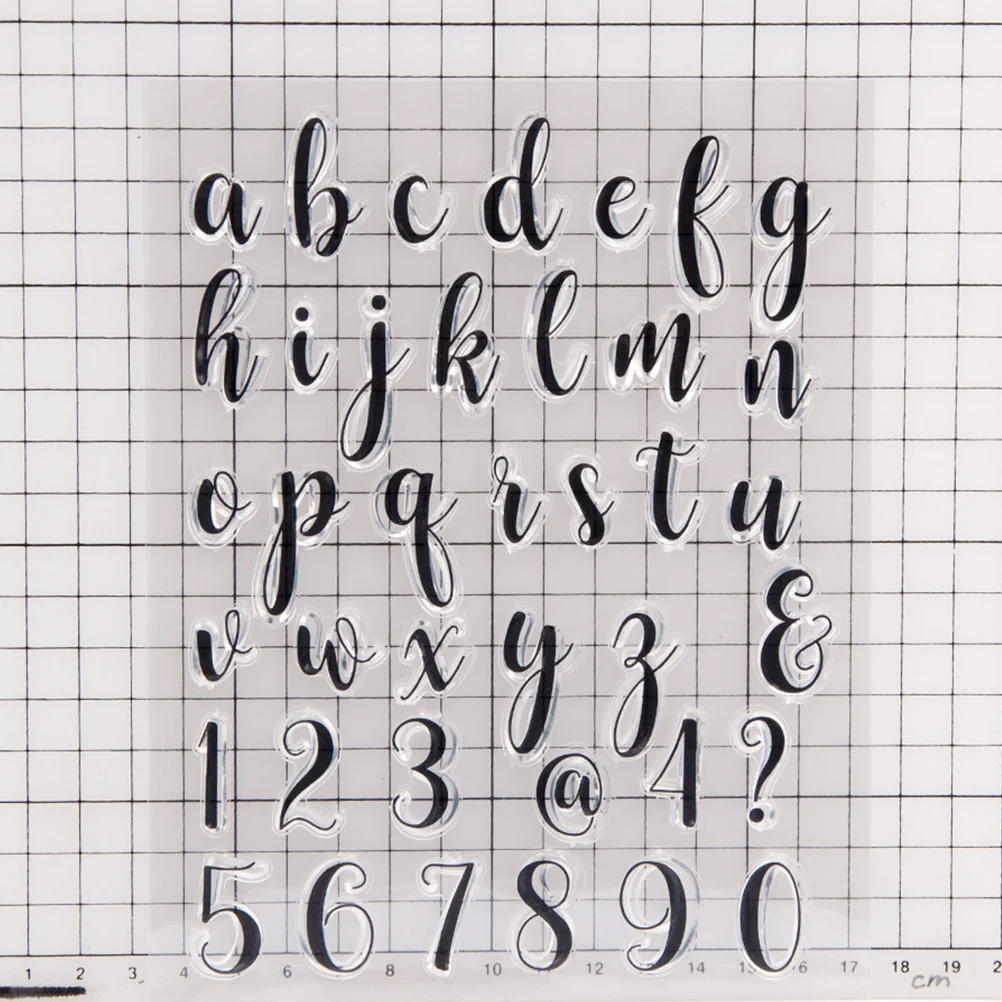 a b c d e f g
h i j k l m n
o p q r s t u
v w x y z &
1 2 3 @ 4 ?
5 6 7 8 9 0
1 2 3 4 6 8 10 12 14 15 16 17 18 19 2
cm